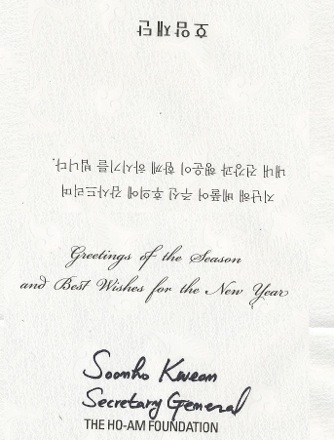 지난해 베풀어 주신 후의에 감사드리며
내내 건강과 행운이 함께 하시기를 빕니다.
호암재단
Greetings of the Season
and Best Wishes for the New Year
Soonho Kweon
Secretary General
THE HO-AM FOUNDATION